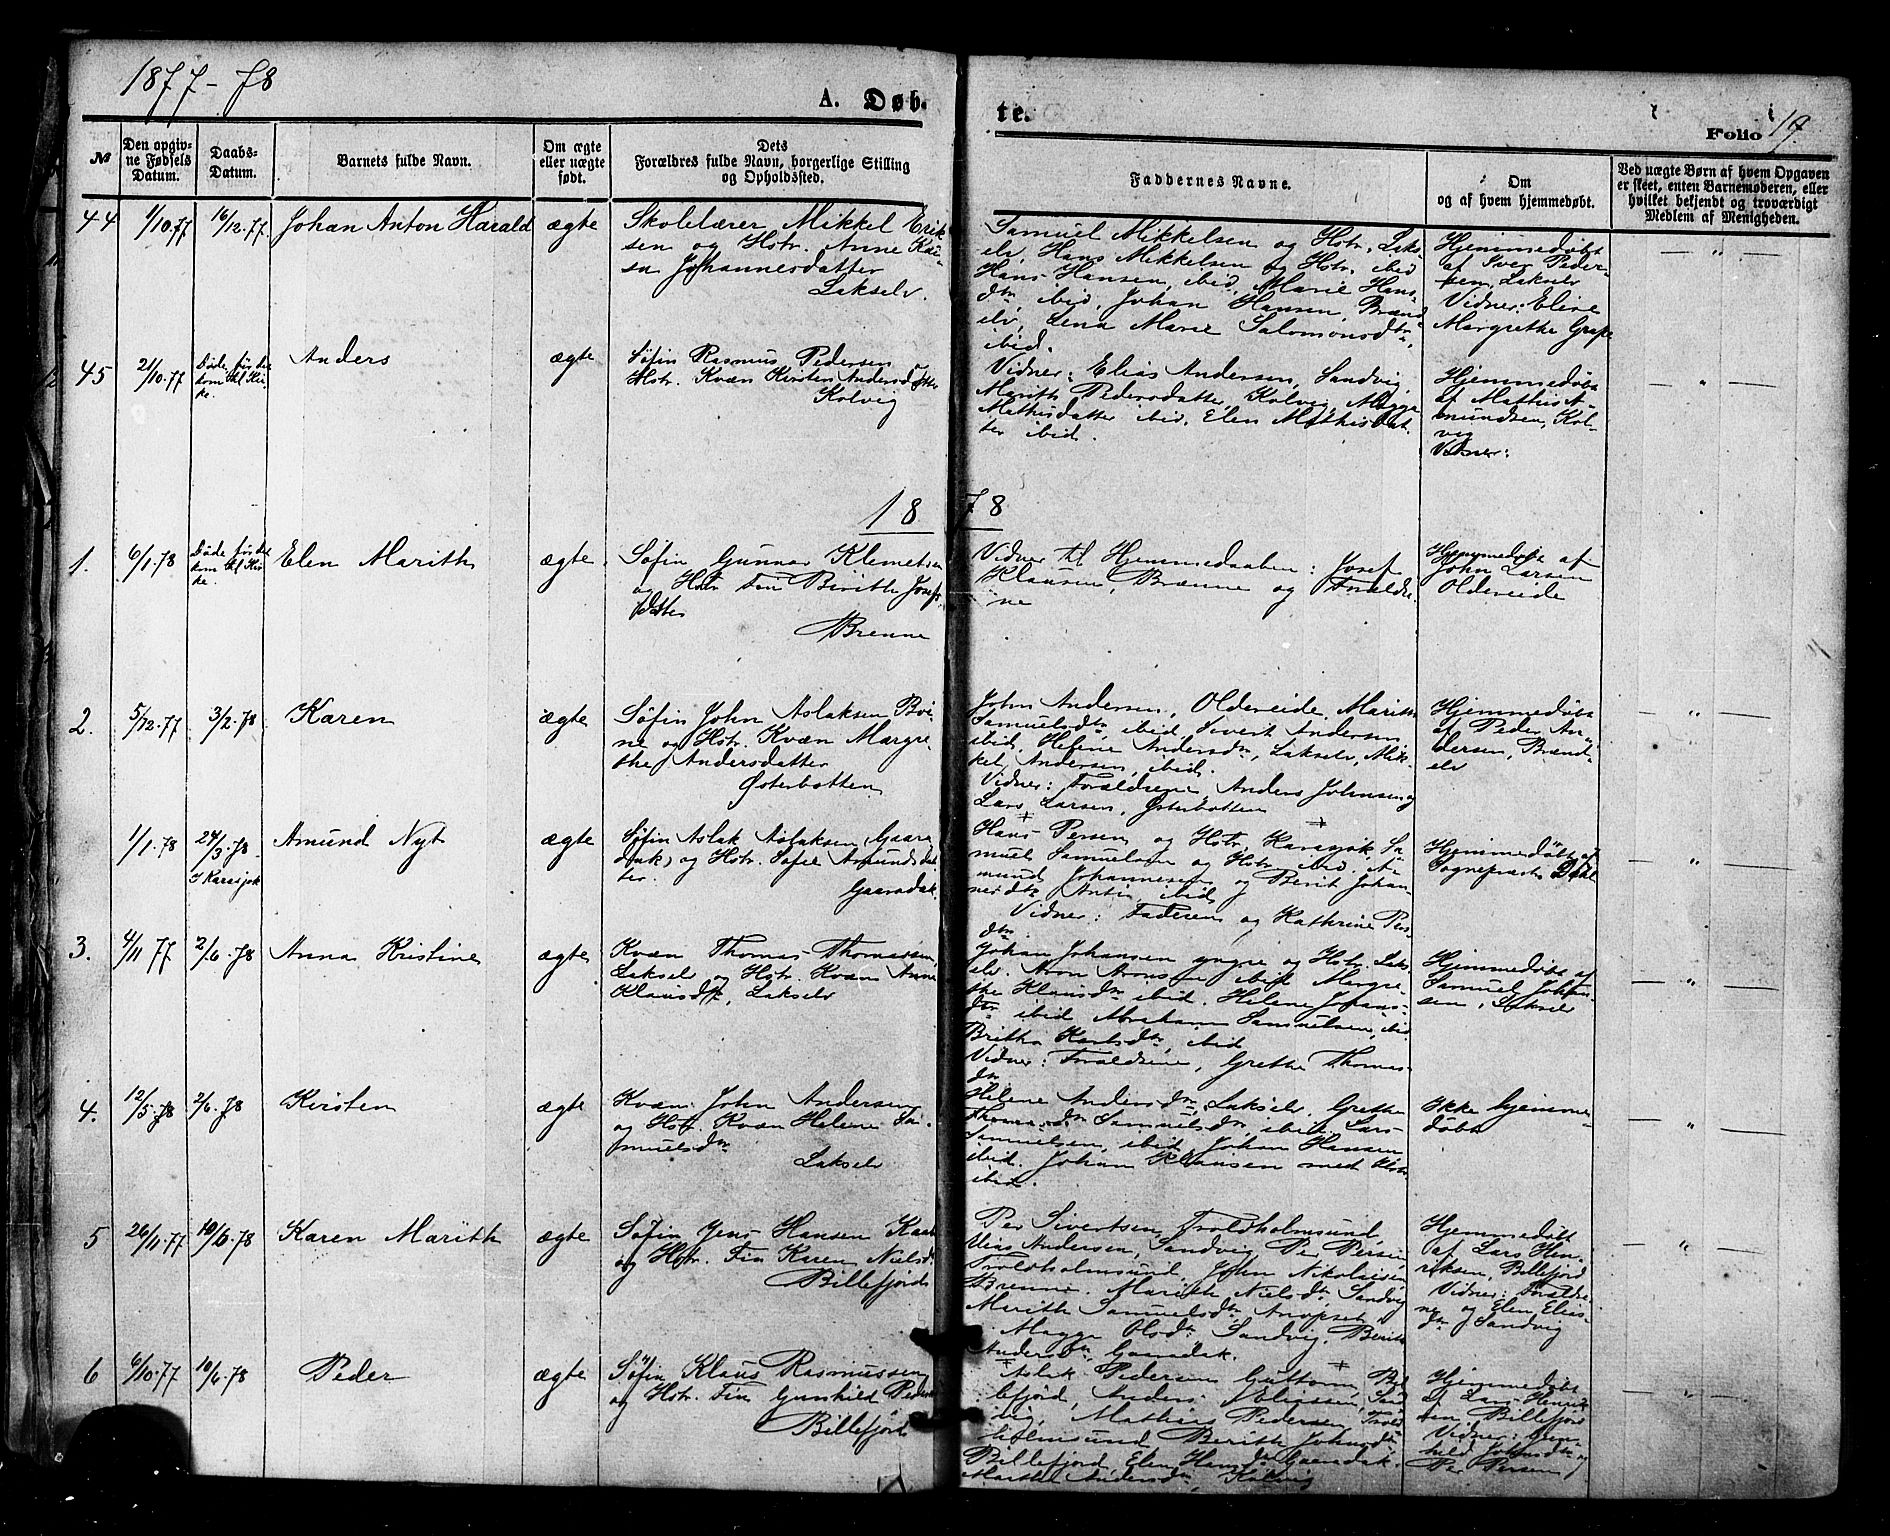 1877-78
A. Døb-
te.
Folio 19.
№
Den opgiv-
ne Fødsels
Datum.
Daabs-
Datum.
Barnets fulde Navn.
Om ægte
eller uægte
født.
Dets
Forældres fulde Navn, borgerlige Stilling
og Opholdssted.
Faddernes Navne.
Om
og af hvem hjemmedøbt.
Ved uægte Børn af hvem Opgaven
er skeet, enten Barnemoderen, eller
hvilket bekjendt og troværdigt
Medlem af Menigheden.
44
9/10.77
16/12.77.
Johan Anton Harald
ægte
Skolelærer Mikkel Erik-
sen og Hstr. Anne Kai-
sa Johannesdatter
Lakselv.
Samuel Mikkelsen og Hstr. Laks-
elv, Hans Mikkelsen og Hstr. ibid
Hans Hansen, ibid, Marie Hans-
dtr ibid, Johan Hansen, Brænd
elv, Lena Marie Salomonsdtr.
ibid.
Hjemmedøbt
af Iver Peder-
sen, Lakselv
Vidner: Elise
Margrethe Grape
— " —
45
21/10.77
Døde før det
kom til Kir-
ke.
Anders
ægte
Søfin Rasmus Pedersen
Hstr. Kvæn Kirsten Andersdatter
Kolvig
Vidner: Elias Andersen, Sandvig,
Marith Pedersdatter, Kolvig, Magga
Mathisdatter ibid, Elen Mathisdat-
ter ibid.
Hjemmedøbt
af Mathis A-
mundsen, Kol-
vig
Vidner:
— " —
1878
1.
6/1.78
Døde før det
kom til Kir-
ke
Elen Marith
ægte
Søfin Gunnar Klemetsen
og Hstr. Fin Birith Josefs-
datter
Brenne
Vidner til Hjemmedaaben: Josef
Klausen, Brenne og Forældre-
ne
Hjemmedøbt af
John Larsen
Oldereide
2.
5/12.77
3/2.78
Karen
ægte
Søfin John Aslaksen
og Hstr. Kvæn Margre-
the Andersdatter
Østerbotten
John Andersen, Oldereide, Marith
Samuelsdtr, ibid, Sivert Andersen
ibid, Helene Andersdtr, Lakselv, Mik-
kel Andersen, ibid.
Vidner: Forældrene Anders Johnsen og
Lars Larsen, Østerbotten
Hjemmedøbt
af Peder An-
dersen, Brænd-
elv
— " —
1/1.78
24/3.78
I Karasjok
Amund Nyt
ægte
Søfin Aslak Aslaksen (Gaara-
dak) og Hstr. Sofie Amundsdat-
ter.
Gaaradak.
Hans Persen og Hstr, Karasjok, Sa-
muel Samuelsen og Hstr, ibid, A-
mund Johannesen og Berit Johan-
nesdtr Anti ibid
Vidner: Faderen og Kathrine Pers-
dtr
Hjemmedøbt af
Sogneprest Dahl
— " —
3.
4/11 77
2/6.78
Anna Kristine
ægte
Kvæn Thomas Thomassen,
Lakselv og Hstr. Kvæn Anne
Klausdtr, Lakselv
Johan Johansen yngre og Hstr. Laks-
elv. Aron Aronsen ibid Margre-
the Klausdtr ibid. Helene Johans-
dtr ibid Abraham Samuelsen, ibid
Britha Karlsdtr, ibid
Vidner: Forældrene, Grethe Thomas-
dtr
Hjemmedøbt af
Samuel Johan-
sen, Lakselv
— " —
4.
12/5.78
2/6.78
Kirsten
ægte
Kvæn John Andersen
og Hstr. Kvæn Helene Sa-
muelsdtr
Lakselv
Helene Andersdtr, Lakselv. Grethe
Samuelsdtr, ibid, Lars
Samuelsen, ibid, Johan Hansen
ibid. Johan Klausen med Hstr
ibid.
Ikke hjemme-
døbt
— " —
5
26/11.77
10/6.78
Karen Marith
ægte
Søfin Jens Hansen
og Hstr. Fin Karen Nielsd.
Billefjord
Per Sivertsen, Troldholmsund,
Elias Andersen, Sandvig, Per Persen,
Troldholmsund, John Nikolaisen
Brenne. Marith Nielsdtr Sandvig
Marith Samuelsdtr
Magga Olsdtr Sandvig, Berith
Andersdtr, Gaaradak.
Hjemmedøbt
af Lars Hen-
riksen, Billefjord
Vidner: Foræld-
ne og Elen Elias-
dtr Sandvig
— " —
6
6/10.77
10/6.78
Peder
ægte
Søfin Klaus Rasmussen
og Hstr. Fin Gunhild Peders
Billefjord
Aslak Pedersen Guttorm, Bil-
lefjord, Anders Eliassen, Sand
vig, Mathis Pedersen, Trold
holmsund Berith Johnsdtr
Billefjord, Elen Hansdtr Gaaradak.
Marthe Andersdtr, Kolvig
Hjemmedøbt
af Lars Henrik
sen, Billefjord
Vidner: Gun-
hild Johnsdtr og
Per Persen
— " —